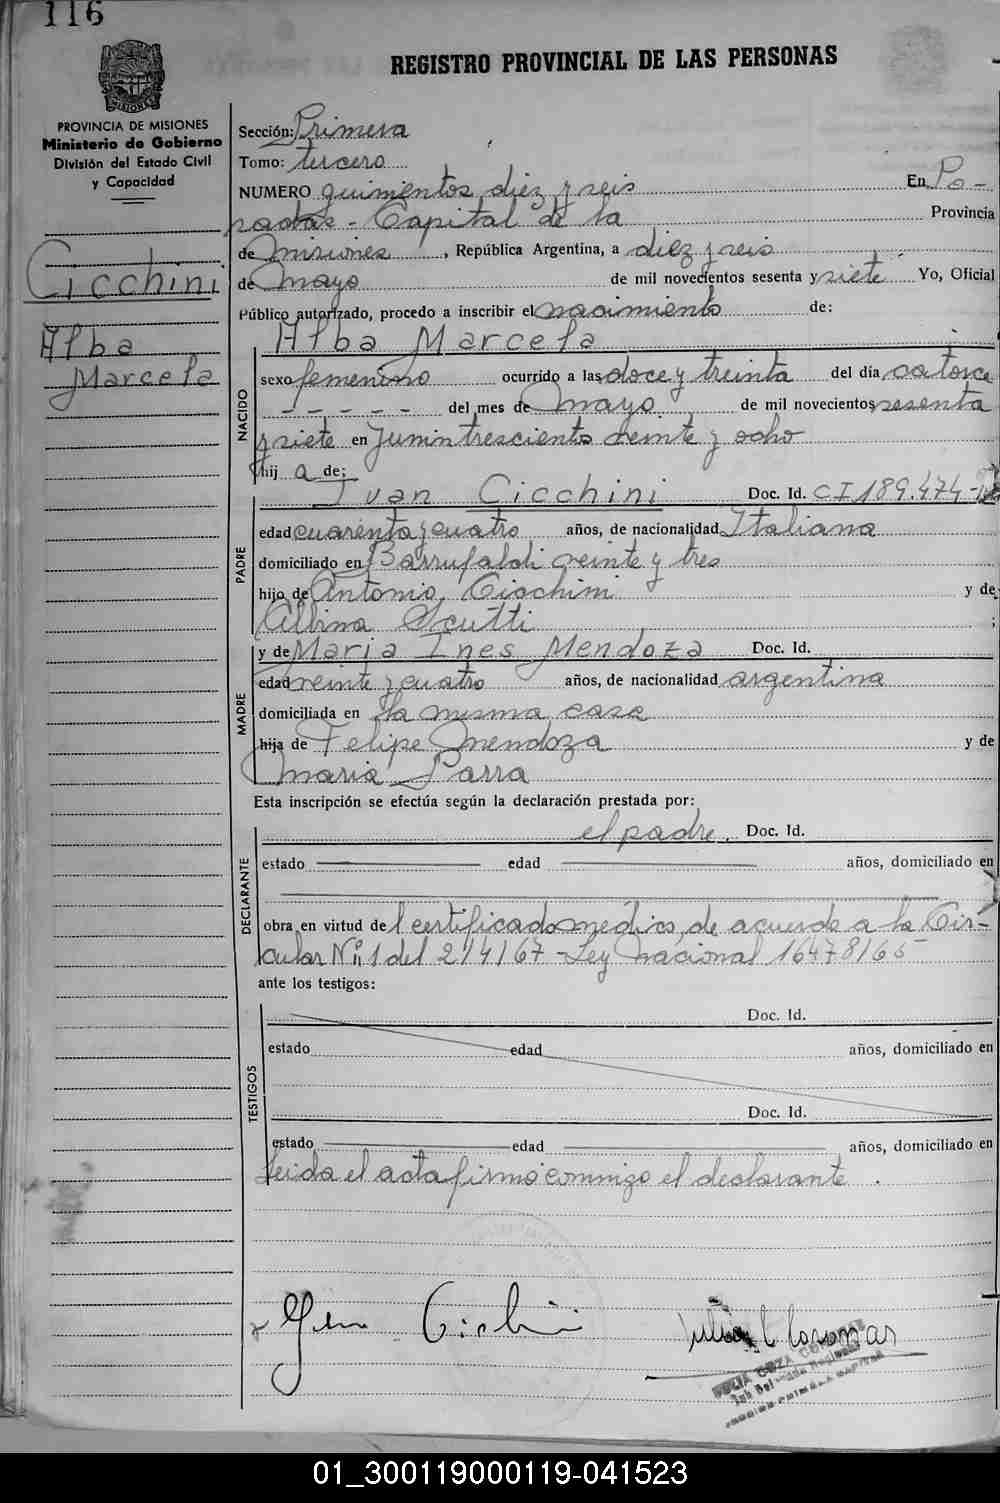 116
REGISTRO PROVINCIAL DE LAS PERSONAS
MISIONES
PROVINCIA DE MISIONES
Ministerio de Gobierno
División del Estado Civil
y Capacidad
Cicchini
Alba
Marcela
Sección: Primera
Tomo: tercero
NUMERO quinientos diez y seis En Po-
sadas - Capital de la Provincia
de Misiones, República Argentina, a diez y seis
de Mayo de mil novecientos sesenta y siete Yo, Oficial
Público autorizado, procedo a inscribir el nacimiento de:
Alba Marcela
NACIDO
sexo femenino ocurrido a las doce y treinta del día catorce
- - - - - del mes de Mayo de mil novecientos sesenta
y siete en Junin trescientos veinte y ocho
hij a de:
Ivan Cicchini Doc. Id. CI 189.474-
PADRE
edad cuarenta y cuatro años, de nacionalidad Italiana
domiciliado en Barrufaldi veinte y tres
hijo de Antonio Cicchini y de
Albina Scutti ;
y de Maria Ines Mendoza Doc. Id.
MADRE
edad veinte y cuatro años, de nacionalidad argentina
domiciliada en la misma casa
hija de Felipe Mendoza y de
Maria Parra
Esta inscripción se efectúa según la declaración prestada por:
el padre. Doc. Id.
DECLARANTE
estado edad años, domiciliado en
obra en virtud del certificado médico, de acuerdo a la Cir-
cular Nº 1 del 2/4/67 - Ley Nacional 16478/65
ante los testigos:
Doc. Id.
TESTIGOS
estado edad años, domiciliado en
Doc. Id.
estado edad años, domiciliado en
Leida el acta firmó conmigo el declarante.
Cicchini
JULIA COZA
01_300119000119-041523